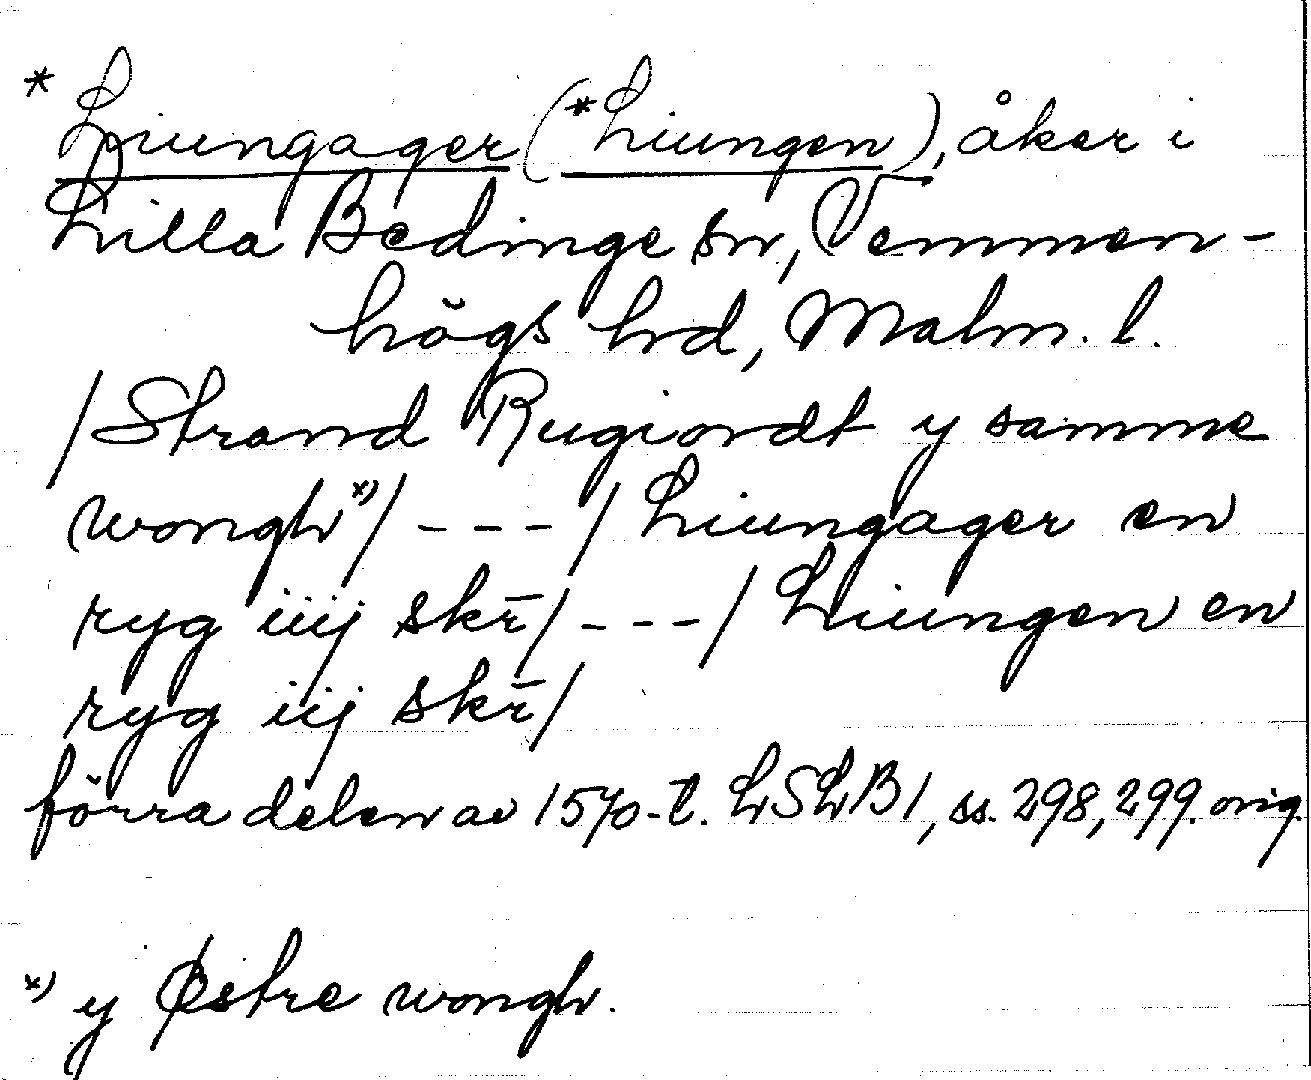 *Liungager (*Liungen), åker i
Lilla Bedinge sn, Vemmen-
högs hd, Malm. l.
/Strand Rugiordt y samme
wongh x)/ - - - / Liungager en
ryg iiij skr̄/ - - - / Liungen en
ryg iij skr̄/
förra delen av 1570-t. LSLB1, ss. 298, 299. orig.
x) y Østre wongh.